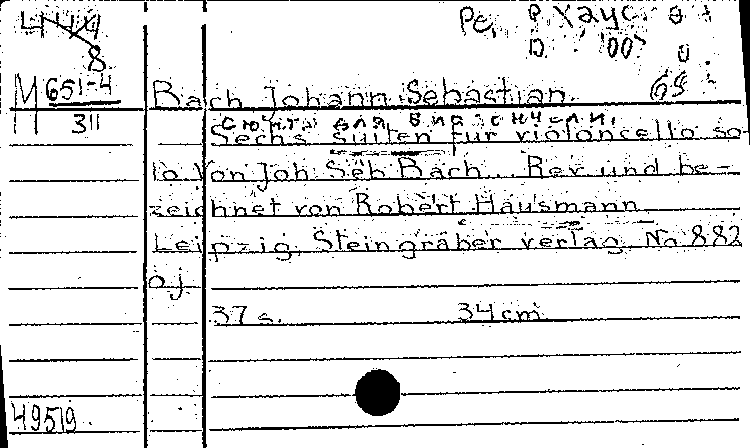 4444
8
Ре. Р. Хаус.
M 651-4
311
Bach Johann Sebastian. 68
сюиты для виолончели.
Sechs Suiten für violoncello so
lo von Joh Seb Bach. Rev und be-
zeichnet von Robert Hausmann
Leipzig, Steingräber verlag, No 882
o.j
37 s. 34 cm
49519.